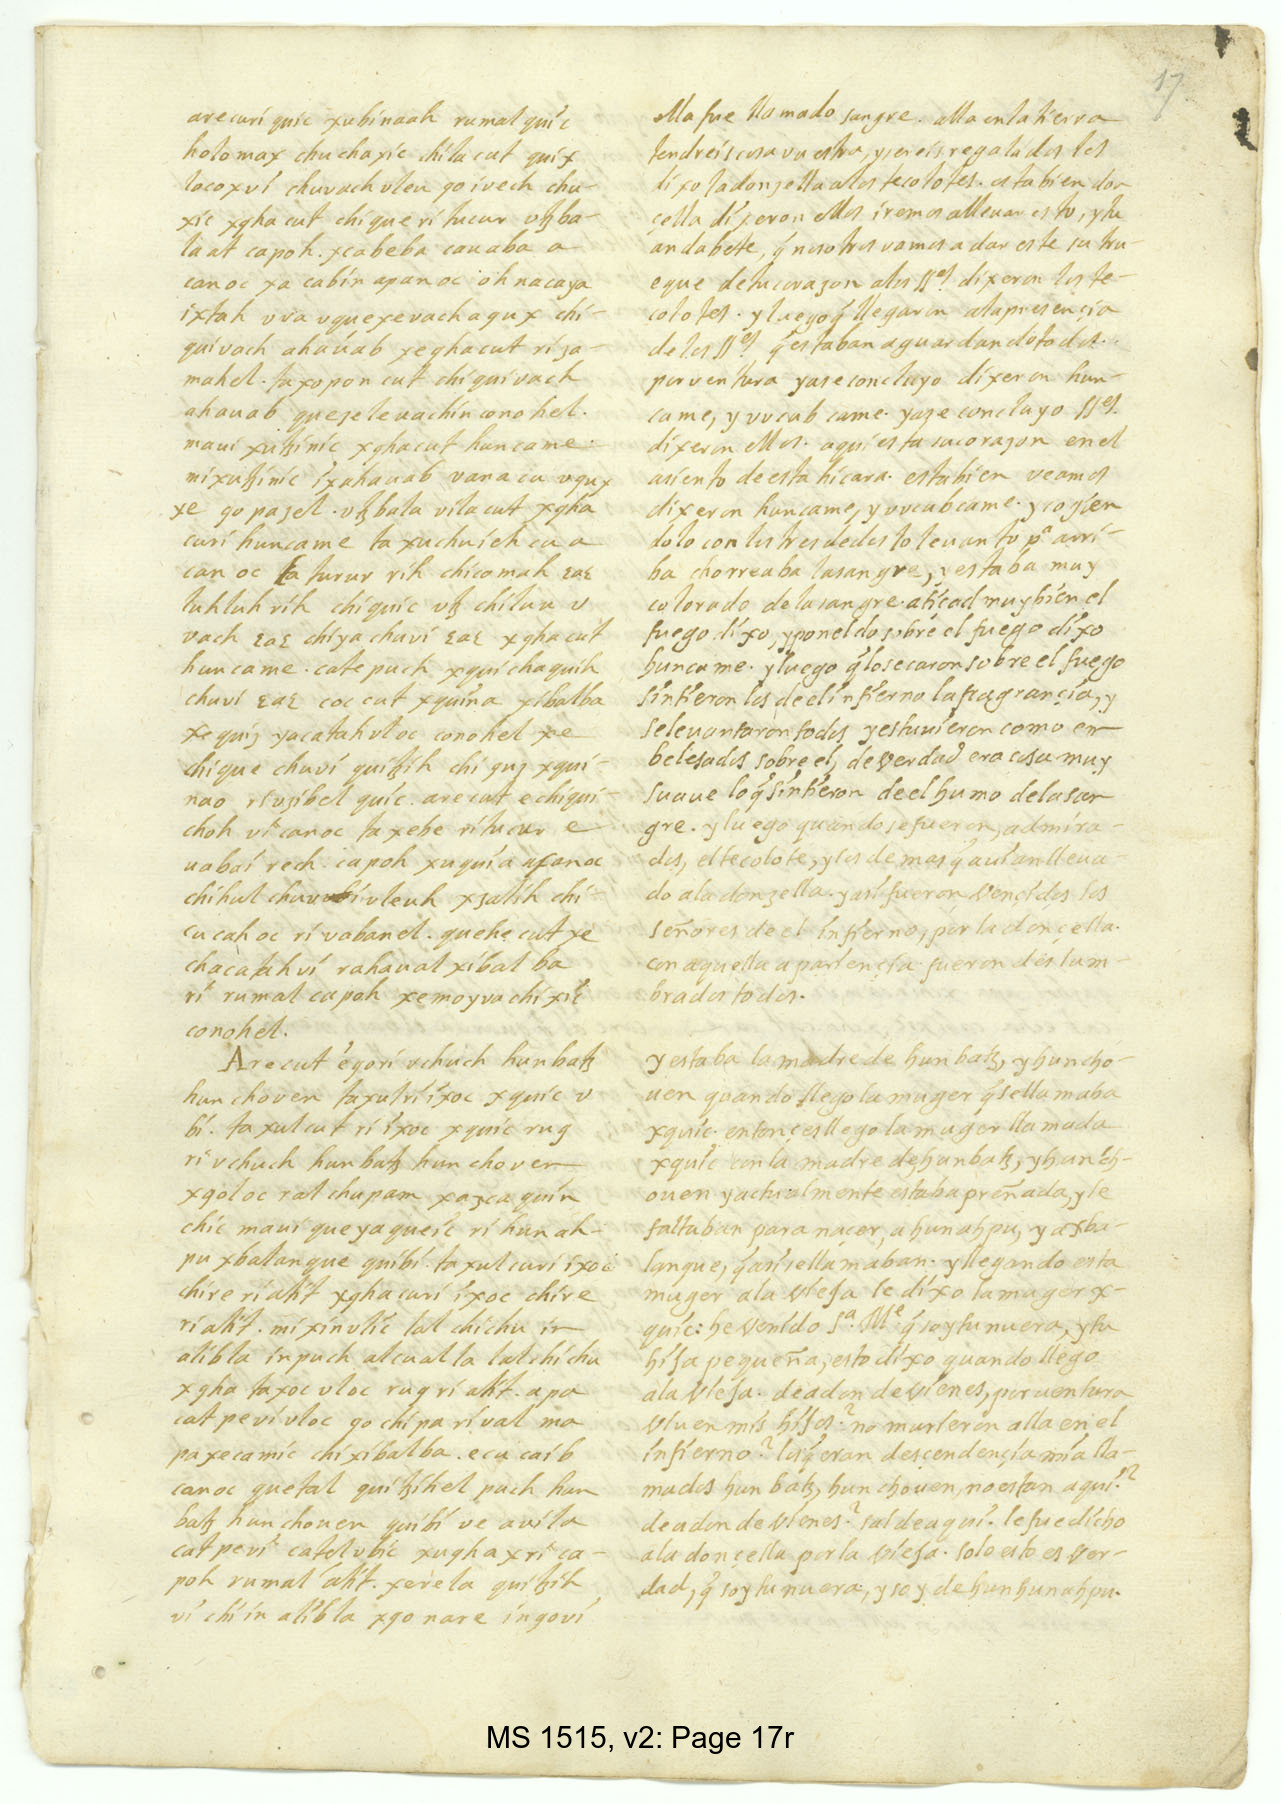 17
arecuri quic xubinaah rumal quic
holomax chuchaxic chila cut quix
locoxvi chuvach vleu qo ivech chu-
xic xgha cut chique ri tucur vtzba-
la at capoh. xcabeba cauaba a-
canoc xa cabin apanoc oh nacaya
ixtah vva vquexevach aqux chi-
quivach ahauab xeghacut riza-
mahel. taxopon cut chiquivach
ahauab quezelevachin conohel.
maui xutzinic xghacut huncame.
mixutzinic ixahauab vanacu vqux
xe qo pazel. vtzbala vila cut xgha
curi huncame ta xuchuieh cu a
canoc ta turur rih chicomah ɛaɛ
luhluh rih chiquic vtz chiluu v
vach ɛaɛ chiya chuvi ɛaɛ xgha cut
huncame. catepuch xquichaquih
chuvi ɛaɛ coc cut xquina xibalba
xe quiz yacatah vloc conohel xe
chique chuvi quitzih chi quz xqui-
nao ri vzibel quic. arecut e chiqui-
choh vi canoc ta xebe ri tucur e
uabai rech. capoh xuquia apanoc
chihul chuvi vleuh xzalih chi-
cucah oc ri vabanel. quehe cut xe
chacatahvi rahaual xibalba
ri rumal capoh xemoyvachixic
conohel.
Arecut eqo ri vchuch hunbatz
hunchoven taxulri ixoc xquic v
bi. ta xulcut ri ixoc xquic ruq
ri vchuch hunbatz hunchoven
xqoloc ral chupam xazcaquin
chic maui queyaqueic ri hunah-
pu xbalanque quibi. ta xul curi ixoc
chire ri atit xghacuri ixoc chire
ri atit. mixinulic lal chichu in
alibla inpuch alcualla lalchichu
xgha taxoc vloc ruq ri atit. apa
catpevi vloc qo chipa ri val ma
paxecamic chixibalba. ecu caib
canoc quetal quitzihel puch hun
batz hunchouen quibi ve auila
catpevi catel ubic xughax ri ca-
poh rumal atit. xerela quitzih
vi chi in alibla xqo nare inqovi
ella fue llamado sangre. alla en la tierra
tendreis cosa vuestra, y sereis regalados los
dixo la donzella a los tecolotes. esta bien don
cella dixeron ellos iremos a lleuar esto, y tu
andabete, q̃ nosotros vamos a dar este su tru-
eque de tu corazon a los SSes. dixeron los te-
colotes. y luego q̃ llegaron a la presencia
de los SSes. q̃ estaban aguardandoto dos.
por ventura ya se concluyo dixeron hun-
came, y vvcub came. ya se concluyo SSes.
dixeron ellos. aqui esta su corazon en el
asiento de esta hicara. esta bien veamos
dixeron huncame, y vvcubcame. y cogien
dolo con los tres dedos lo levanto pa. arri-
ba chorreaba la sangre, y estaba muy
colorado de la sangre. aticad muy bien el
fuego dixo, y poneldo sobre el fuego dixo
huncame. y luego q̃ lo secaron sobre el fuego
sintieron los de el infierno la fragrancia, y
se levantaron todos y estuuieron como em
belesados sobre el, de verdad era cosa muy
suaue lo q̃ sintieron de el humo de la san
gre. y luego quando se fueron, admira-
dos, el tecolote, y los demas q̃ auian lleua-
do a la donzella. y asi fueron vencidos los
señores de el infierno, por la doncella.
con aquella apariencia fueron deslum-
brados todos.
y estaba la madre de hun batz, y huncho-
uen quando llego la muger q̃ se llamaba
xquic. entonces llego la muger llamada
xquic con la madre de hunbatz, y hunch-
ouen y actualmente estaba preñada, y le
faltaban para nacer, a hunahpu, y a xba-
lanque, q̃ asi se llamaban. y llegando esta
muger a la vieja le dixo la muger x-
quic: he venido Sa. Me. q̃ soy tu nuera, y tu
hija pequeña, esto dixo quando llego
a la vieja. de adonde vienes, por uentura
viuen mis hijos? no murieron alla en el
infierno? los q̃ eran descendencia mia lla-
mados hun batz, hun chouen, no estan aqui?
de adonde vienes? sal de aqui. le fue dicho
a la doncella por la vieja. solo esto es ver-
dad, q̃ soy tu nuera, y soy de hunhunahpu.
MS 1515, v2: Page 17r